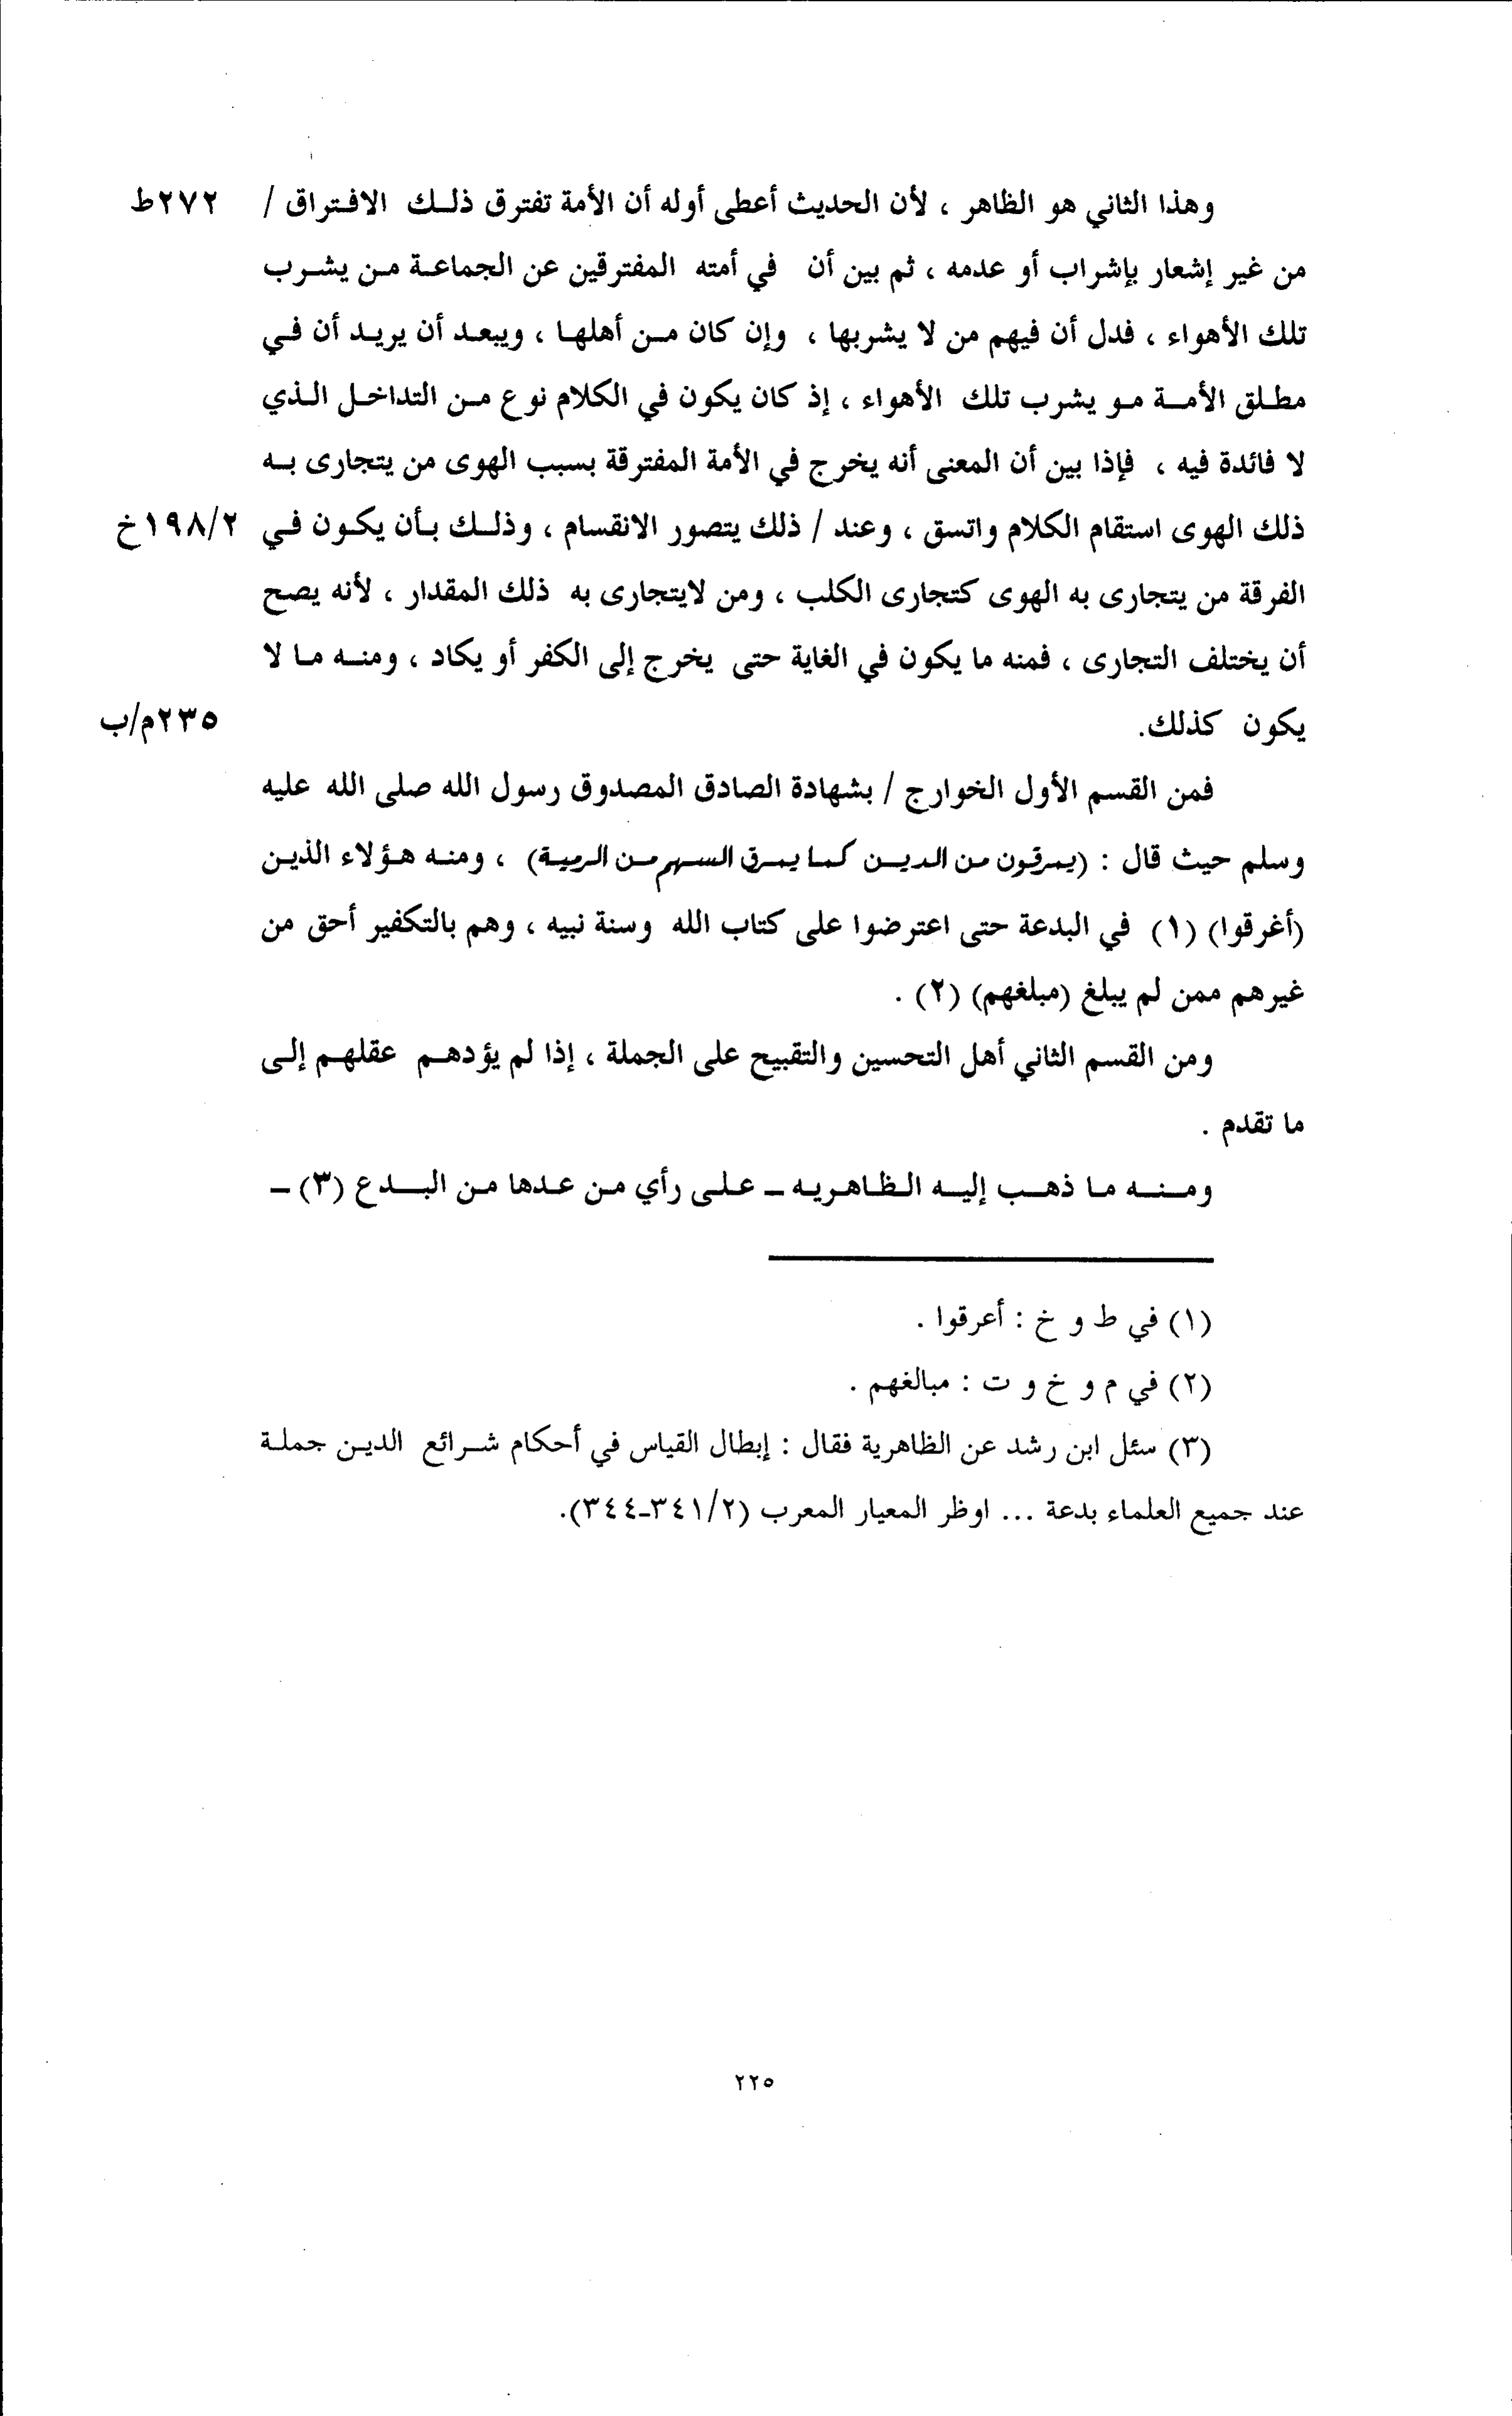 وهذا الثاني هو الظاهر ، لأن الحديث أعطى أوله أن الأمة تفترق ذلك الافتراق / ٢٧٢ط
من غير إشعار بإشراب أو عدمه ، ثم بين أن في أمته المفترقين عن الجماعة من يشرب
تلك الأهواء ، فدل أن فيهم من لا يشربها ، وإن كان من أهلها ، ويبعد أن يريد أن في
مطلق الأمة مو يشرب تلك الأهواء ، إذ كان يكون في الكلام نوع من التداخل الذي
لا فائدة فيه ، فإذا بين أن المعنى أنه يخرج في الأمة المفترقة بسبب الهوى من يتجارى به
ذلك الهوى استقام الكلام واتسق ، وعند / ذلك يتصور الانقسام ، وذلك بأن يكون في ١٩٨/٢خ
الفرقة من يتجارى به الهوى كتجارى الكلب ، ومن لايتجارى به ذلك المقدار ، لأنه يصح
أن يختلف التجارى ، فمنه ما يكون في الغاية حتى يخرج إلى الكفر أو يكاد ، ومنه ما لا
يكون كذلك. ٢٣٥م/ب
فمن القسم الأول الخوارج / بشهادة الصادق المصدوق رسول الله صلى الله عليه
وسلم حيث قال : (يمرقون من الدين كما يمرق السهم من الرمية) ، ومنه هؤلاء الذين
(أغرقوا) (١) في البدعة حتى اعترضوا على كتاب الله وسنة نبيه ، وهم بالتكفير أحق من
غيرهم ممن لم يبلغ (مبلغهم) (٢) .
ومن القسم الثاني أهل التحسين والتقبيح على الجملة ، إذا لم يؤدهم عقلهم إلى
ما تقدم .
ومنه ما ذهب إليه الظاهريه - على رأي من عدها من البدع (٣) -
(١) في ط و خ : أعرقوا .
(٢) في م و خ و ت : مبالغهم .
(٣) سئل ابن رشد عن الظاهرية فقال : إبطال القياس في أحكام شرائع الدين جملة
عند جميع العلماء بدعة ... اوظر المعيار المعرب (٣٤١/٢-٣٤٤).
٢٢٥